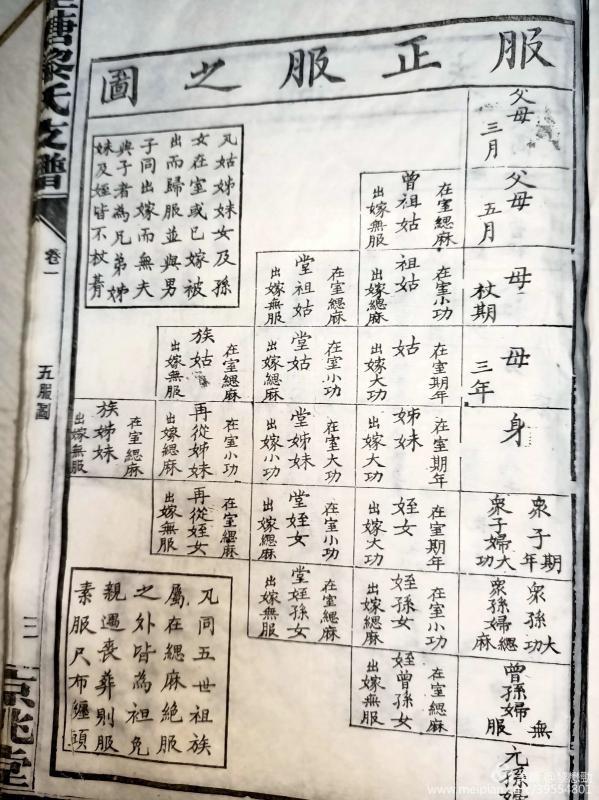 服正服之圖
父母
三月
父母
五月
母
杖期
母
三年
身
衆子期年
衆子婦大功
衆孫大功
衆孫婦緦麻
曾孫婦無服
元孫婦
在室緦麻
曾祖姑
出嫁無服
在室小功
祖姑
出嫁緦麻
在室期年
姑
出嫁大功
在室期年
姊妹
出嫁大功
在室期年
姪女
出嫁大功
在室小功
姪孫女
出嫁緦麻
在室緦麻
姪曾孫女
出嫁無服
在室緦麻
堂祖姑
出嫁無服
在室小功
堂姑
出嫁緦麻
在室大功
堂姊妹
出嫁小功
在室小功
堂姪女
出嫁緦麻
在室緦麻
堂姪孫女
出嫁無服
在室緦麻
族姑
出嫁無服
在室小功
再從姊妹
出嫁緦麻
在室緦麻
再從姪女
出嫁無服
在室緦麻
族姊妹
出嫁無服
凡姑姊妹女及孫
女在室或已嫁被
出而歸服並與男
子同出嫁而無夫
與子者為兄弟姊
妹及姪皆不杖朞
凡同五世祖族
屬在緦麻絕服
之外皆為袒免
親遇喪葬則服
素服尺布纏頭
塘黎氏支譜
卷一
五服圖
三
京兆堂
www.meipian.cn/39554801